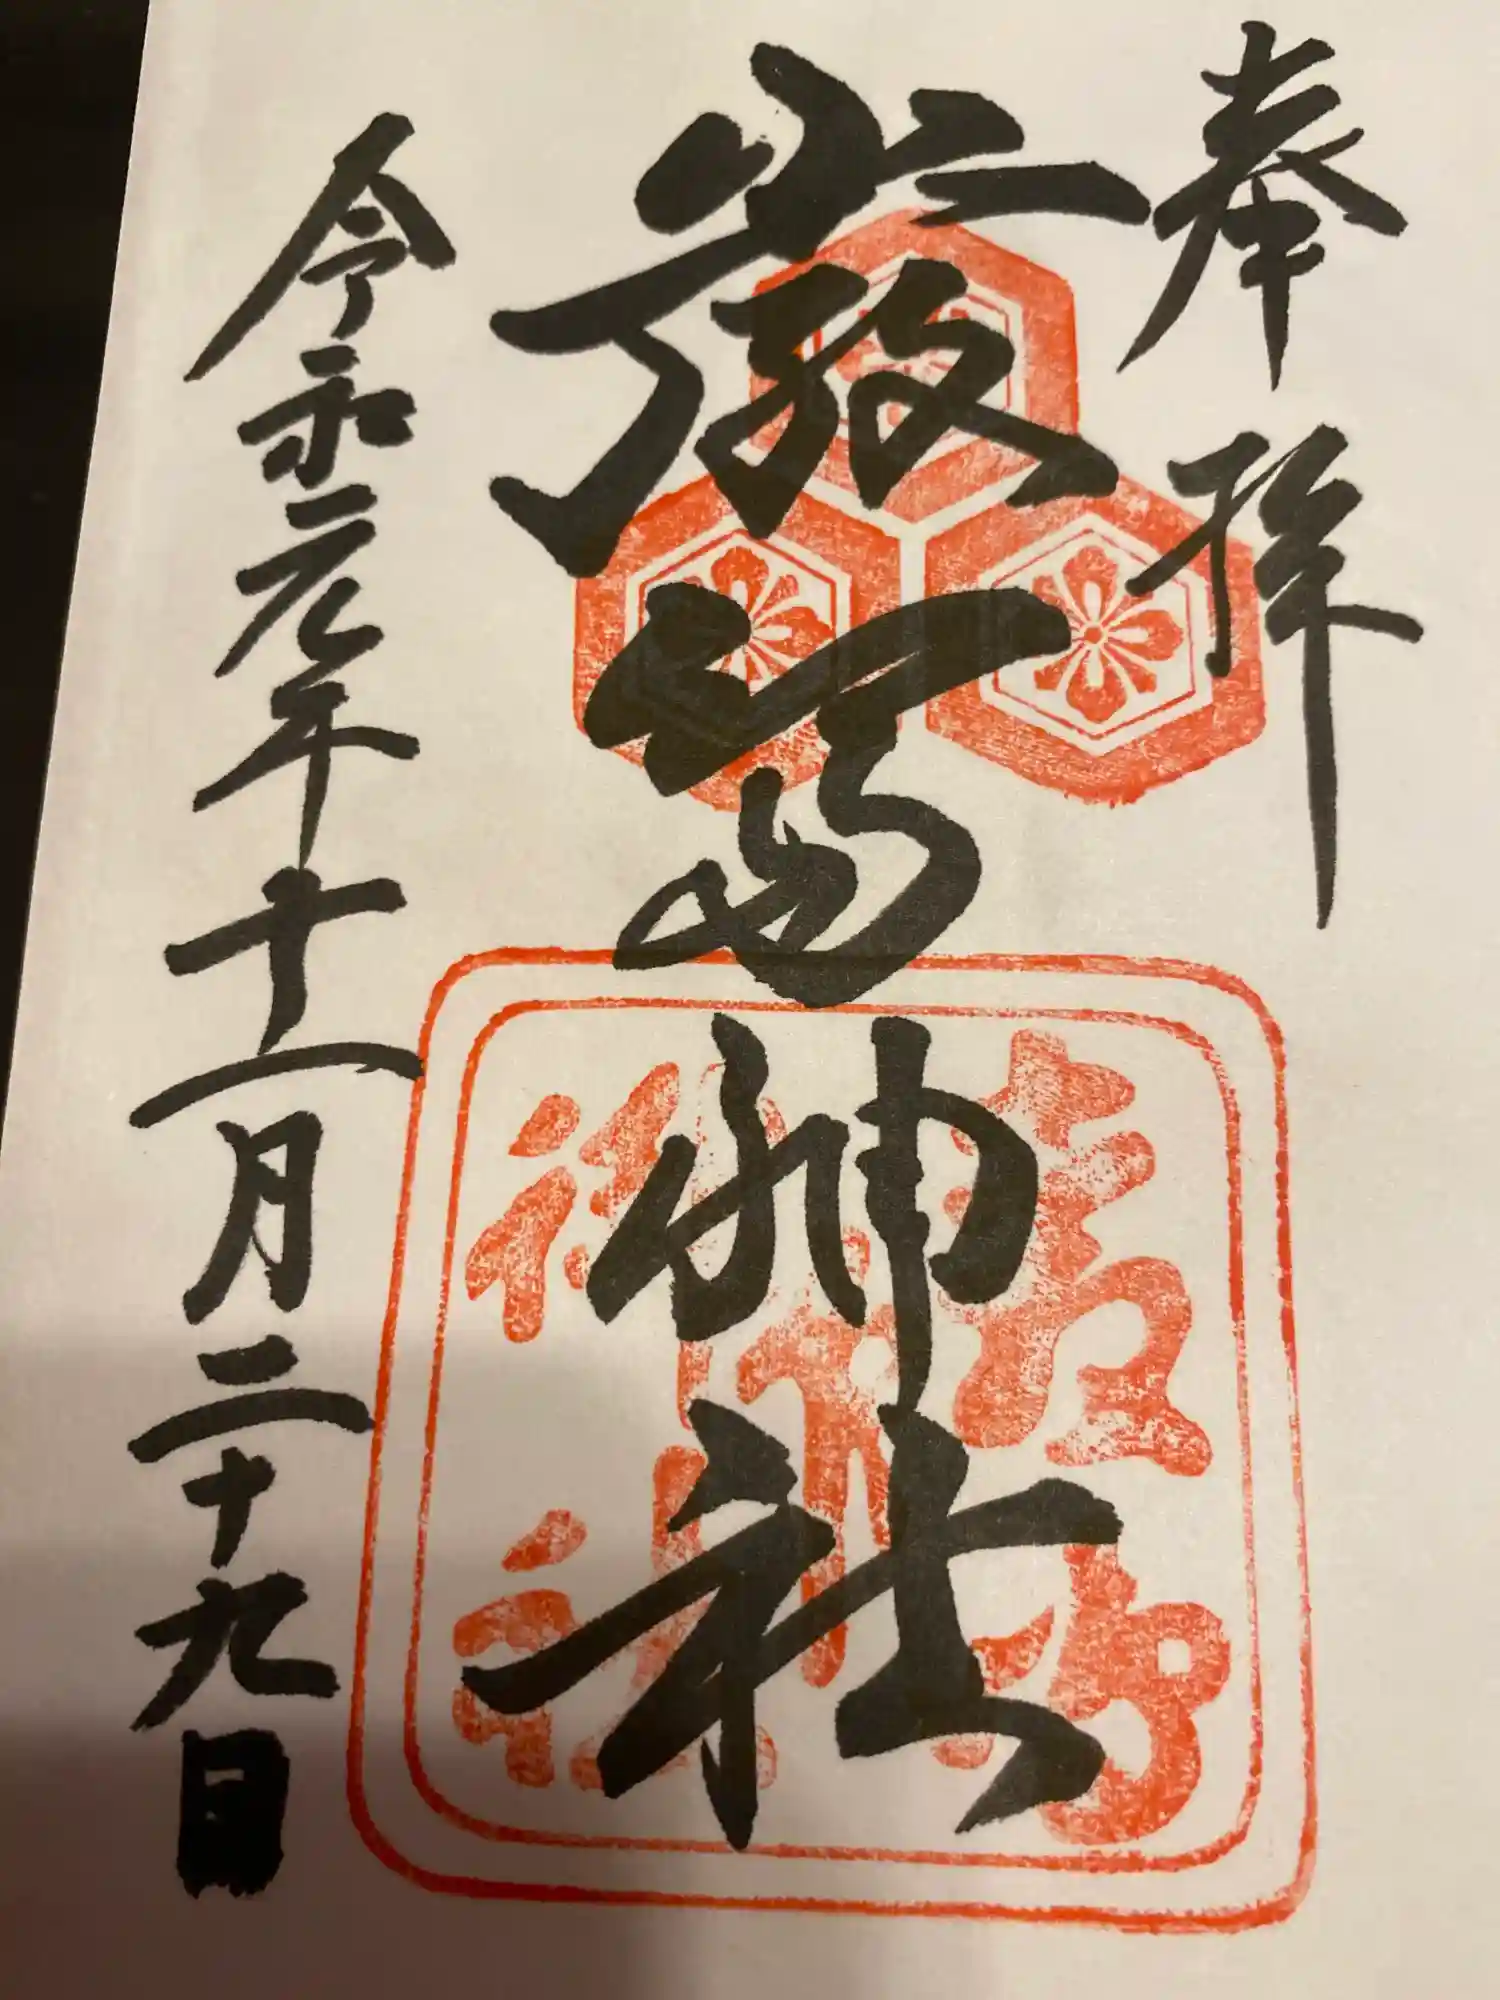 奉拝
嚴嶌神社
令和元年十一月二十九日
嚴島神社